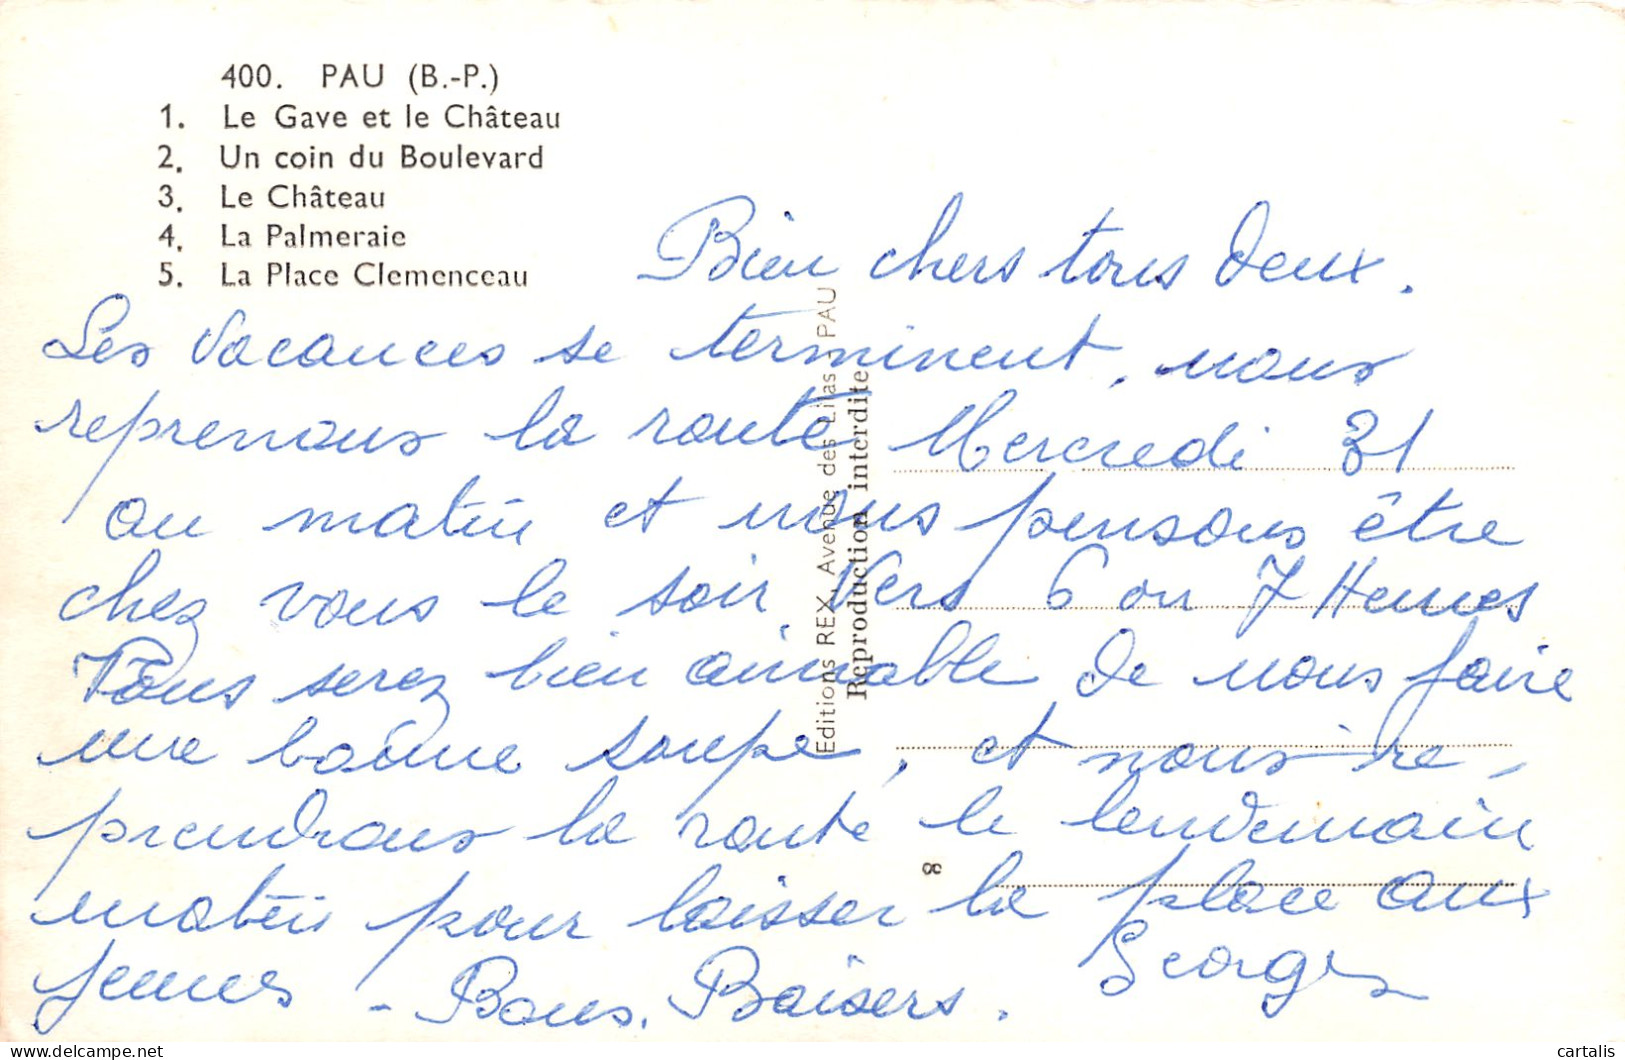 400. PAU (B.-P.)
1. Le Gave et le Château
2. Un coin du Boulevard
3. Le Château
4. La Palmeraie
5. La Place Clemenceau
Bien chers tous deux.
Les vacances se terminent, nous
reprenons la route Mercredi 31
au matin et nous pensons être
chez vous le soir, Vers 6 ou 7 Heures
Vous serez bien aimable de nous faire
une bonne soupe, et nous re-
prendrons la route le lendemain
matin pour laisser la place aux
jeunes - Bons. Baisers.
Georges
Editions REX, Avenue des Lilas - PAU
Reproduction interdite
8
cartalis